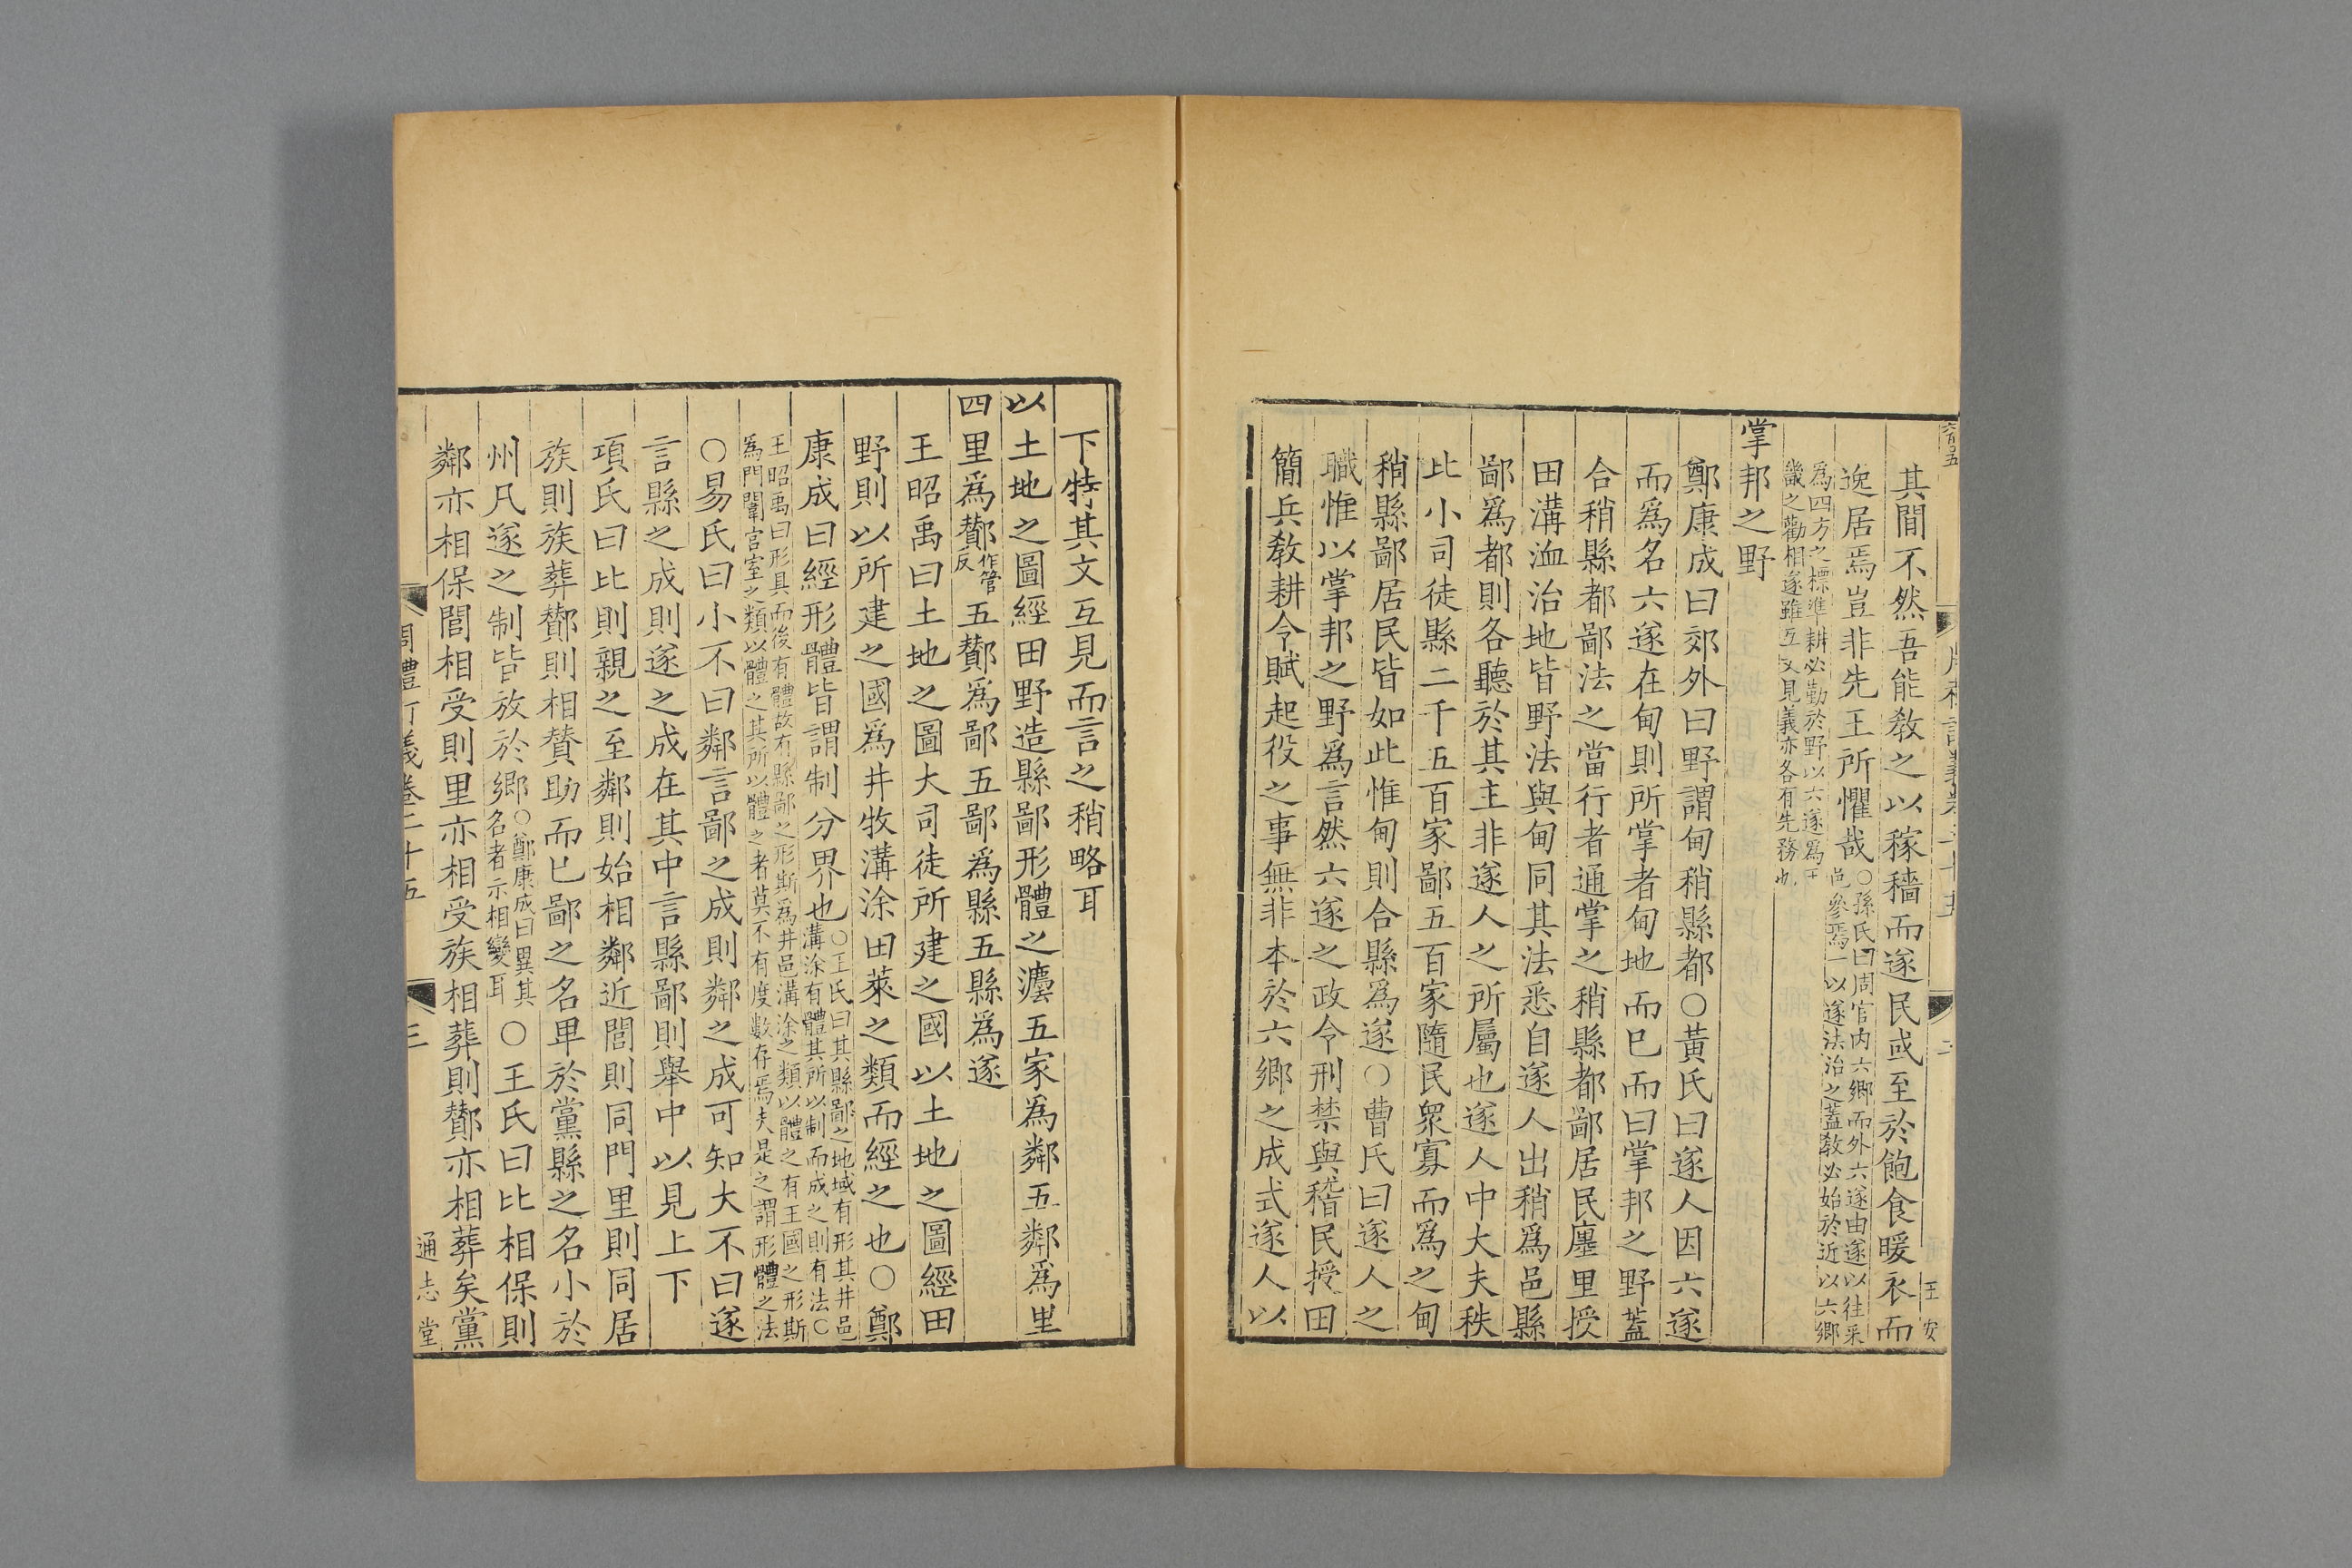 其間不然吾能敎之以稼穡而遂民或至於飽食暖衣而
逸居焉豈非先王所懼哉
○孫氏曰周官内六鄉而外六遂由遂以往采
邑參焉一以遂法治之蓋敎必始於近以六鄉
爲四方之標準耕必勤於野以六遂爲王
畿之勸相遂雖互文見義亦各有先務也
掌邦之野
鄭康成曰郊外曰野謂甸稍縣都○黃氏曰遂人因六遂
而爲名六遂在甸則所掌者甸地而已而曰掌邦之野蓋
合稍縣都鄙法之當行者通掌之稍縣都鄙居民廛里授
田溝洫治地皆野法與甸同其法悉自遂人出稍爲邑縣
鄙爲都則各聽於其主非遂人之所屬也遂人中大夫秩
此小司徒縣二千五百家鄙五百家隨民衆寡而爲之甸
稍縣鄙居民皆如此惟甸則合縣爲遂○曹氏曰遂人之
職惟以掌邦之野爲言然六遂之政令刑禁與稽民授田
簡兵敎耕令賦起役之事無非本於六鄉之成式遂人以
下特其文互見而言之稍略耳
以土地之圖經田野造縣鄙形體之灋五家爲鄰五鄰爲里
四里爲酇作管反五酇爲鄙五鄙爲縣五縣爲遂
王昭禹曰土地之圖大司徒所建之國以土地之圖經田
野則以所建之國爲井牧溝涂田萊之類而經之也○鄭
康成曰經形體皆謂制分界也
○王氏曰其縣鄙之地域有形其井邑
溝涂有體其所以制而成之則有法○
王昭禹曰形具而後有體故有縣鄙之形斯爲井邑溝涂之類以體之有王國之形斯
爲門闈宫室之類以體之其所以體之者莫不有度數存焉夫是之謂形體之法
○易氏曰小不曰鄰言鄙之成則鄰之成可知大不曰遂
言縣之成則遂之成在其中言縣鄙則舉中以見上下
項氏曰比則親之至鄰則始相鄰近閭則同門里則同居
族則族葬酇則相贊助而已鄙之名卑於黨縣之名小於
州凡遂之制皆放於鄉
○鄭康成曰異其
名者示相變耳
○王氏曰比相保則
鄰亦相保閭相受則里亦相受族相葬則酇亦相葬矣黨
周禮訂義卷二十五
三
通志堂
王安